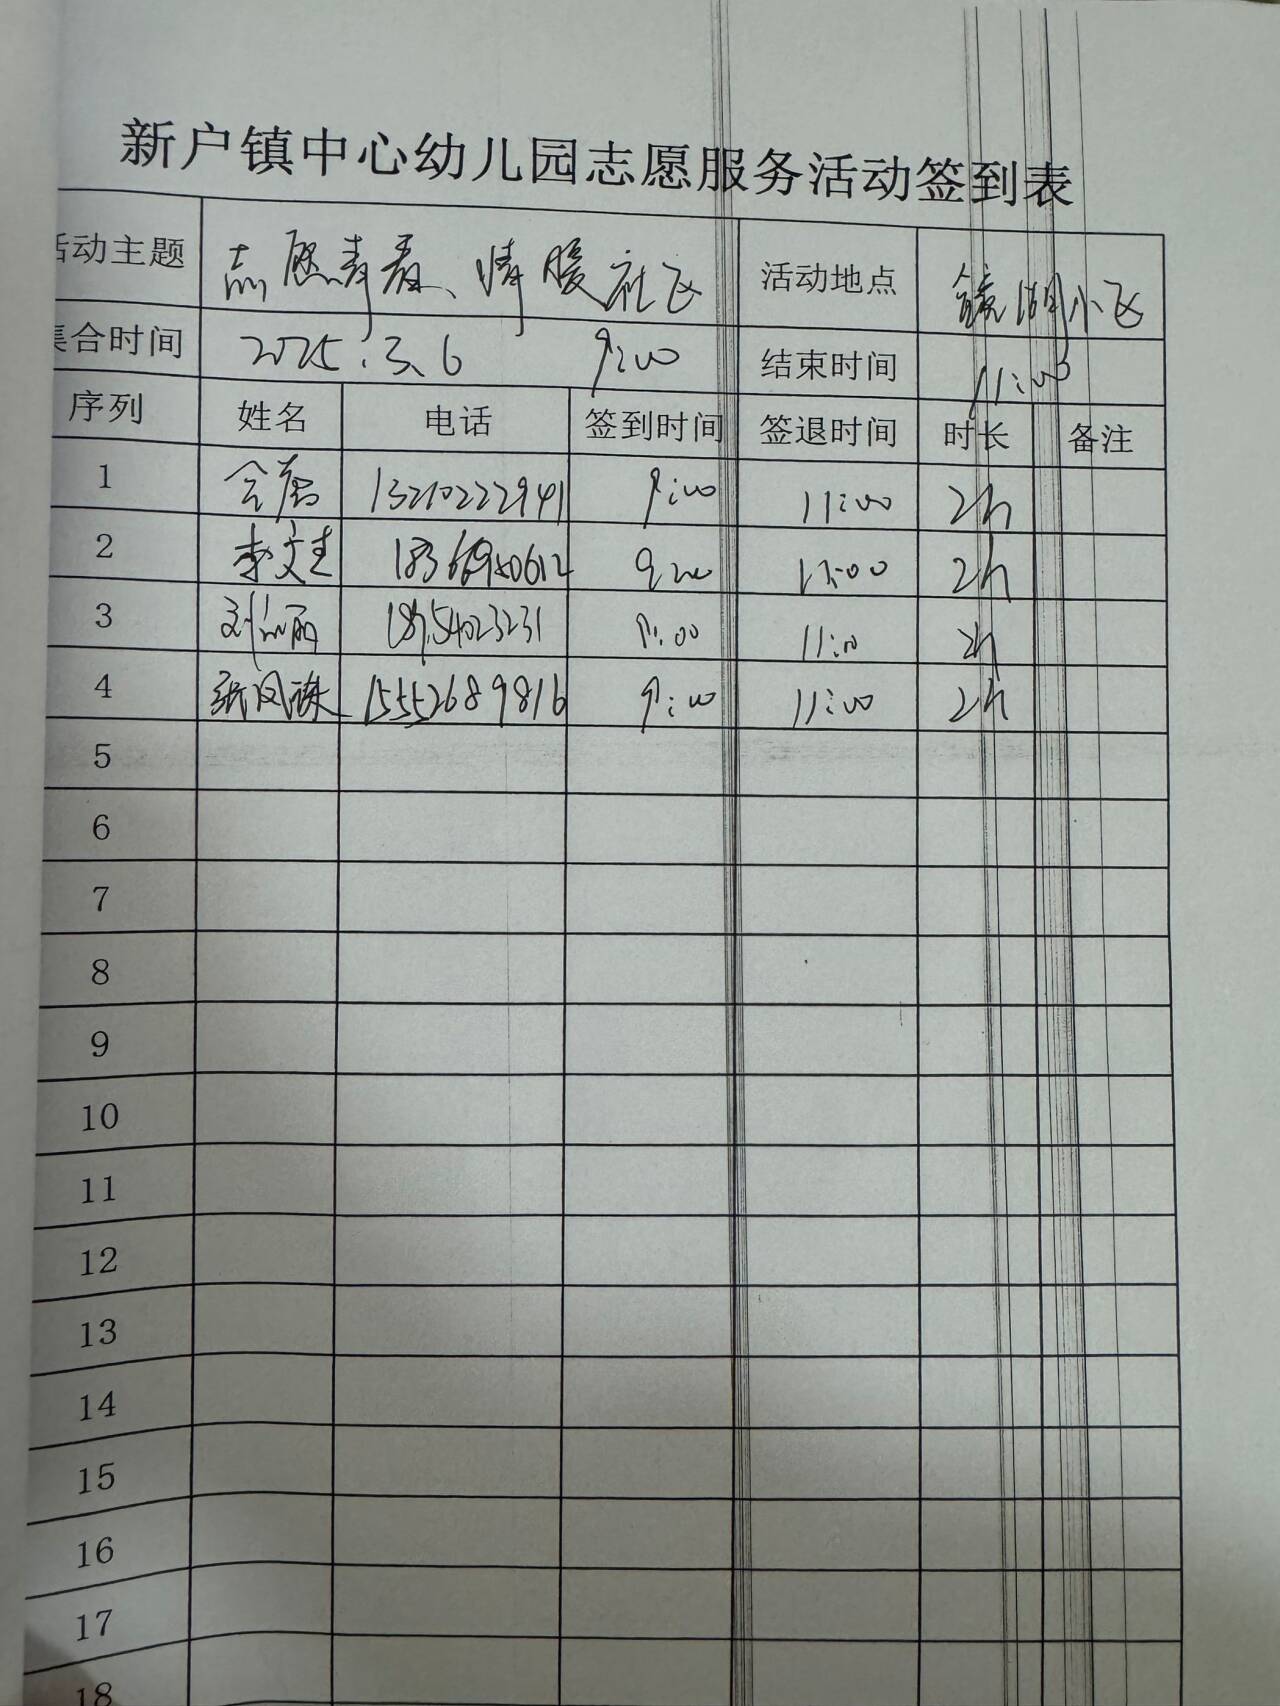 新户镇中心幼儿园志愿服务活动签到表
活动主题 志愿青春、情暖社区 活动地点 镜湖小区
集合时间 2025.3.6 9:00 结束时间 11:00
序列 姓名 电话 签到时间 签退时间 时长 备注
1 13210222941 9:00 11:00 2h
2 李文 9:00 11:00 2h
3 刘 丽 18954023231 9:00 11:00 2h
4 张凤 15552689816 9:00 11:00 2h
5
6
7
8
9
10
11
12
13
14
15
16
17
18